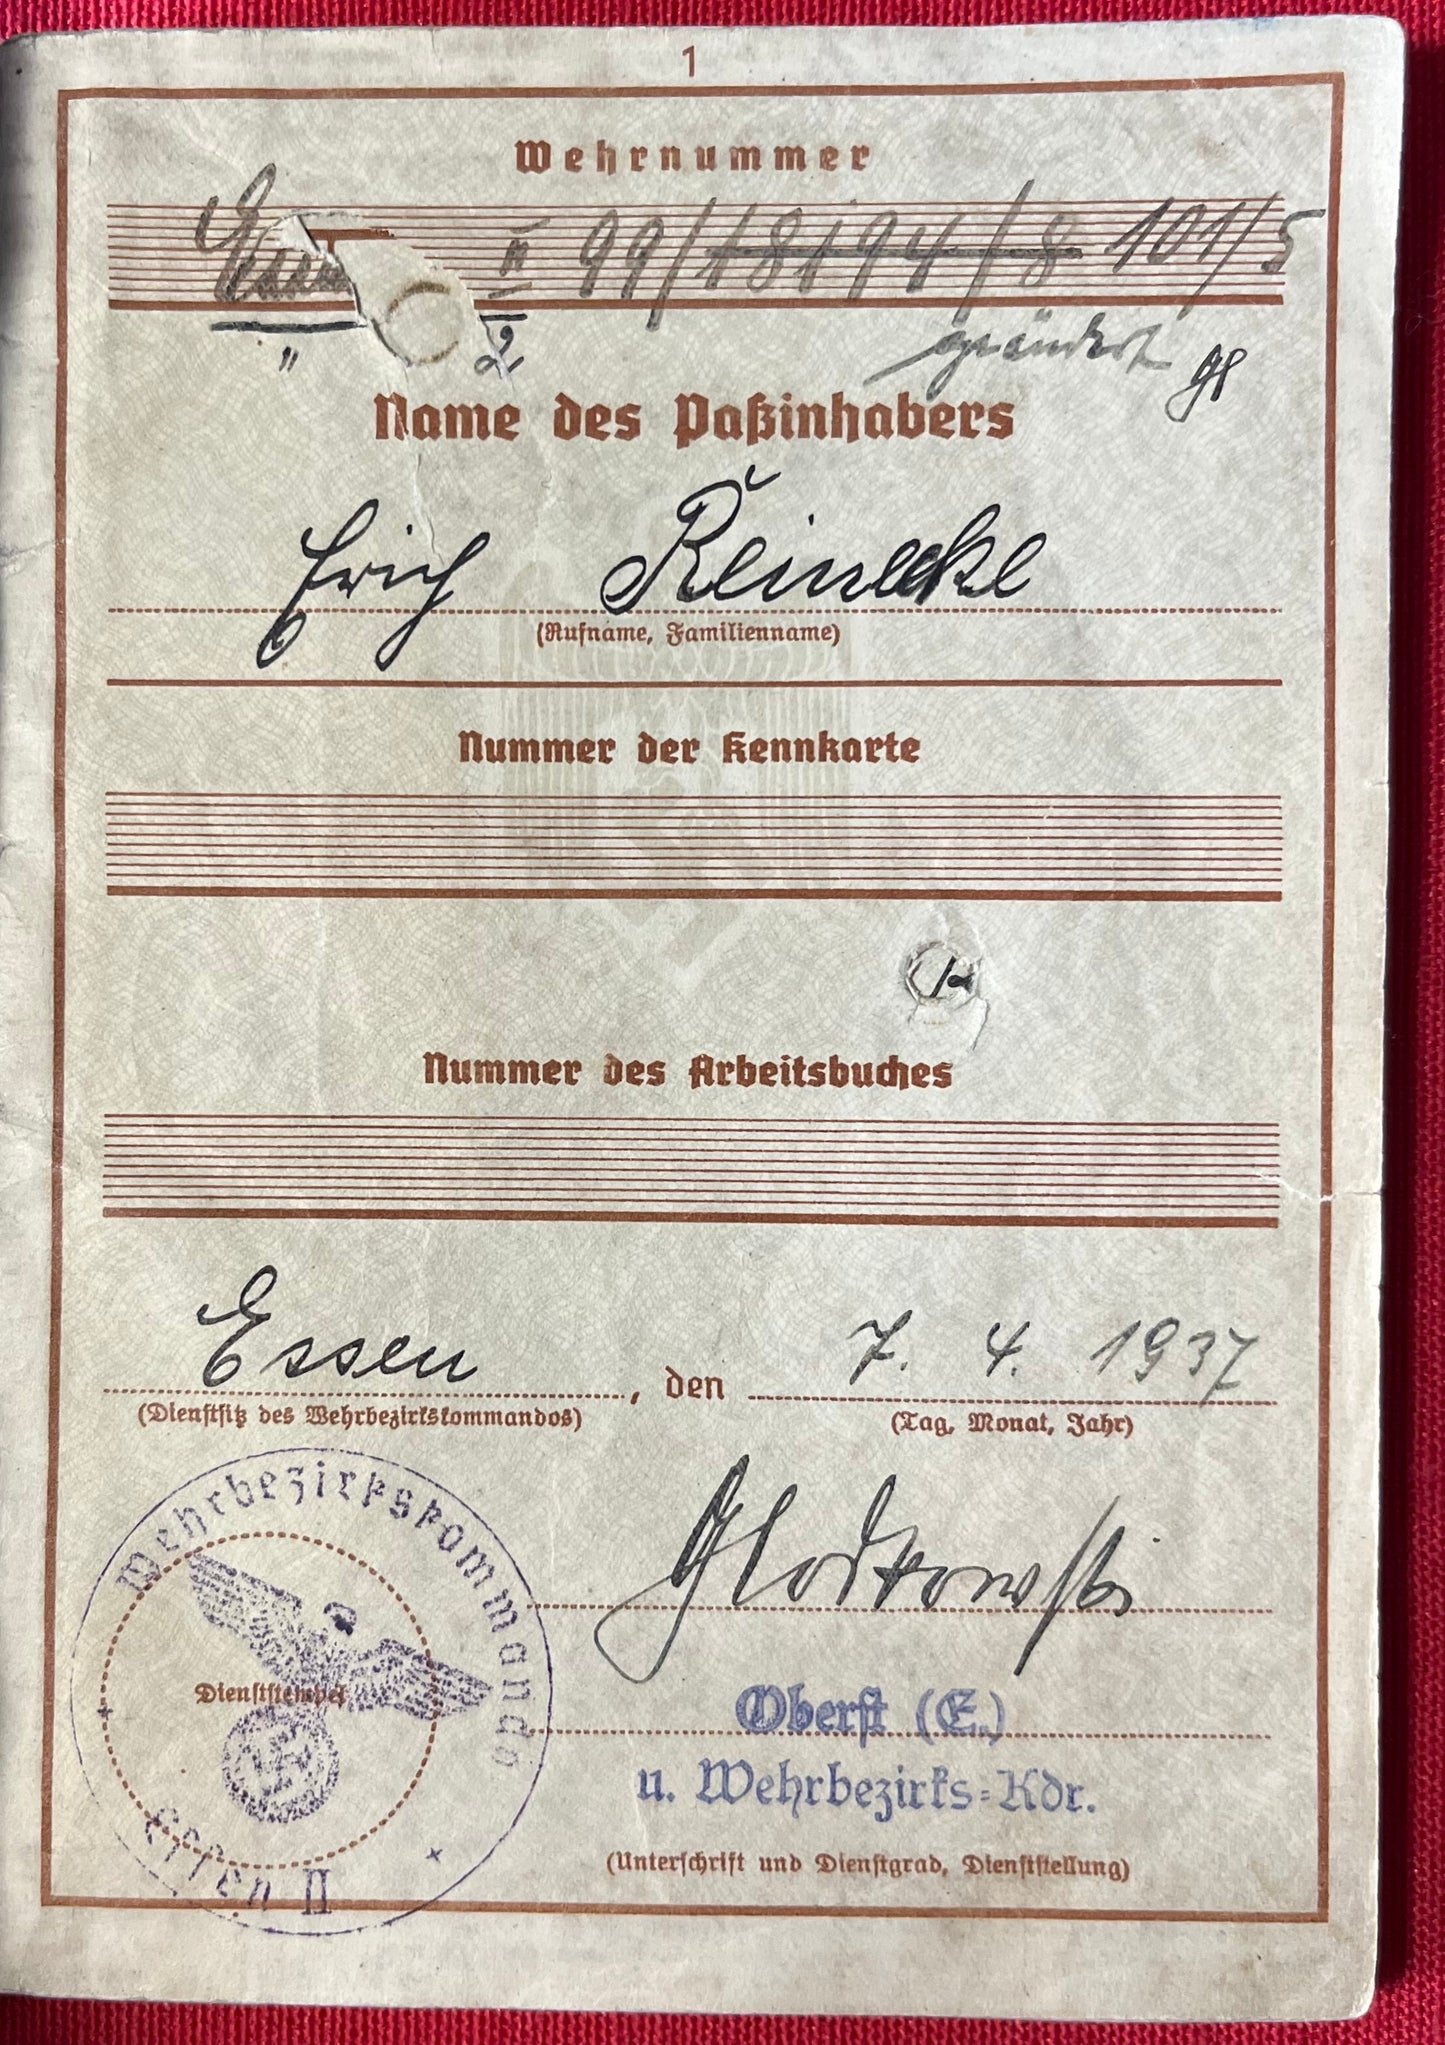 1
Wehrnummer
Essen II 99/18194/8 101/5
" 2 geändert
Name des Paßinhabers
Erich Reinecke
(Rufname, Familienname)
Nummer der Kennkarte
Nummer des Arbeitsbuches
Essen, den 7. 4. 1937
(Dienstsitz des Wehrbezirkskommandos) (Tag, Monat, Jahr)
Wehrbezirkskommando
Essen II
Dienststempel
Glodkowski
Oberst (E.)
u. Wehrbezirks=Kdr.
(Unterschrift und Dienstgrad, Dienststellung)